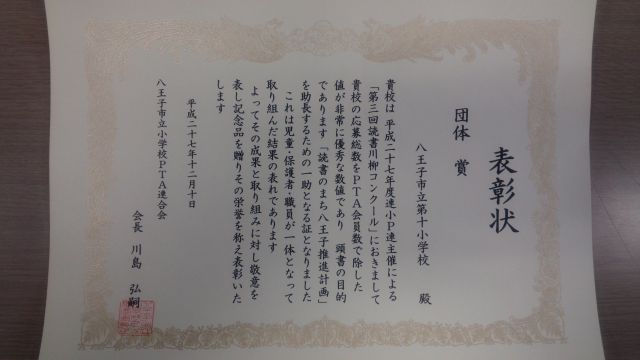 表彰状
団体賞
八王子市立第十小学校 殿
貴校は 平成二十七年度連小P連主催による
「第三回読書川柳コンクール」におきまして
貴校の応募総数をPTA会員数で除した
値が非常に優秀な数値であり 頭書の目的
であります「読書のまち八王子推進計画」
を助長するための一助となる証となりました
これは児童・保護者・職員が一体となって
取り組んだ結果の表れであります
よってその成果と取り組みに対し敬意を
表し記念品を贈りその栄誉を称え表彰いた
します
平成二十七年十二月十日
八王子市立小学校PTA連合会
会長 川島 弘嗣